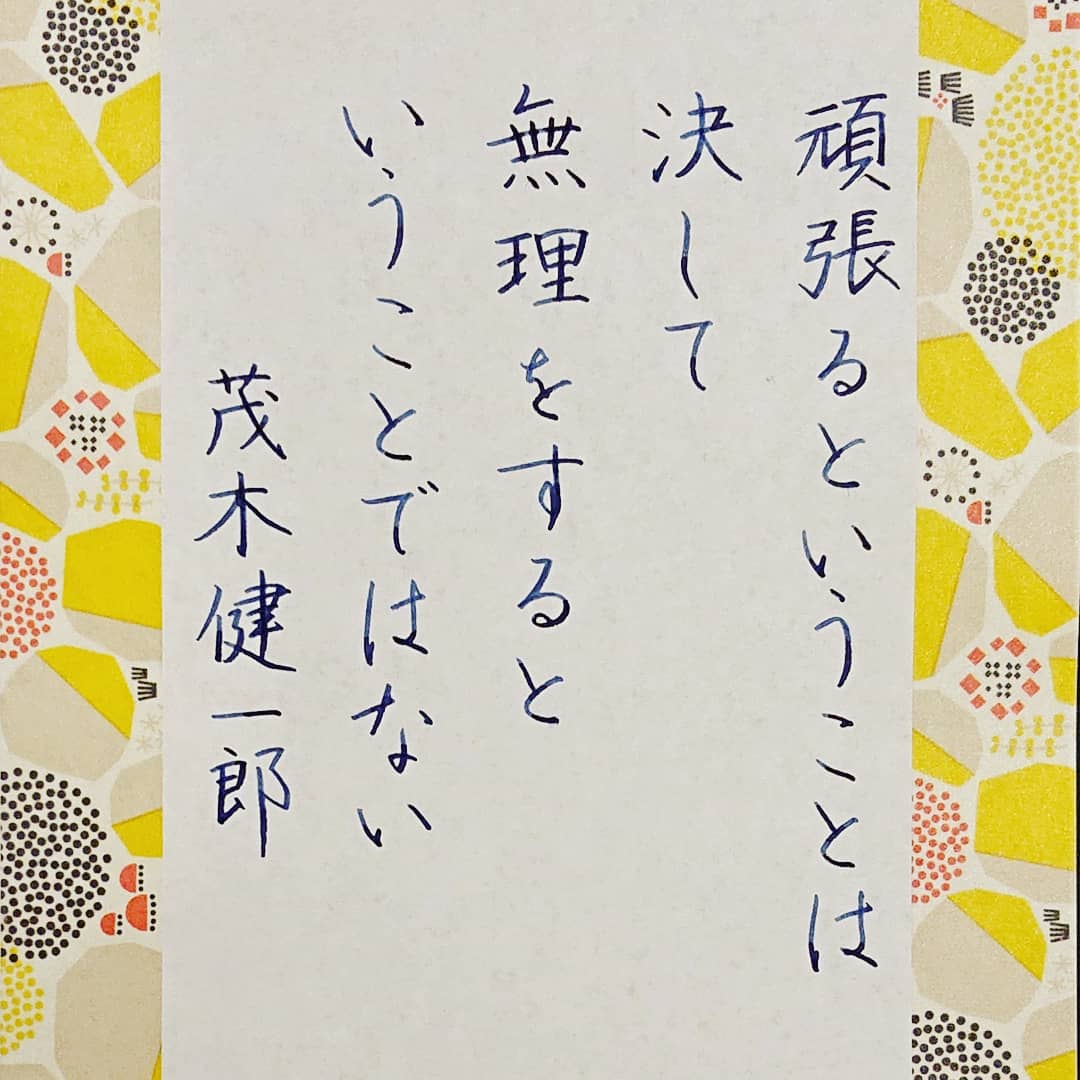 頑張るということは
決して
無理をすると
いうことではない
茂木健一郎